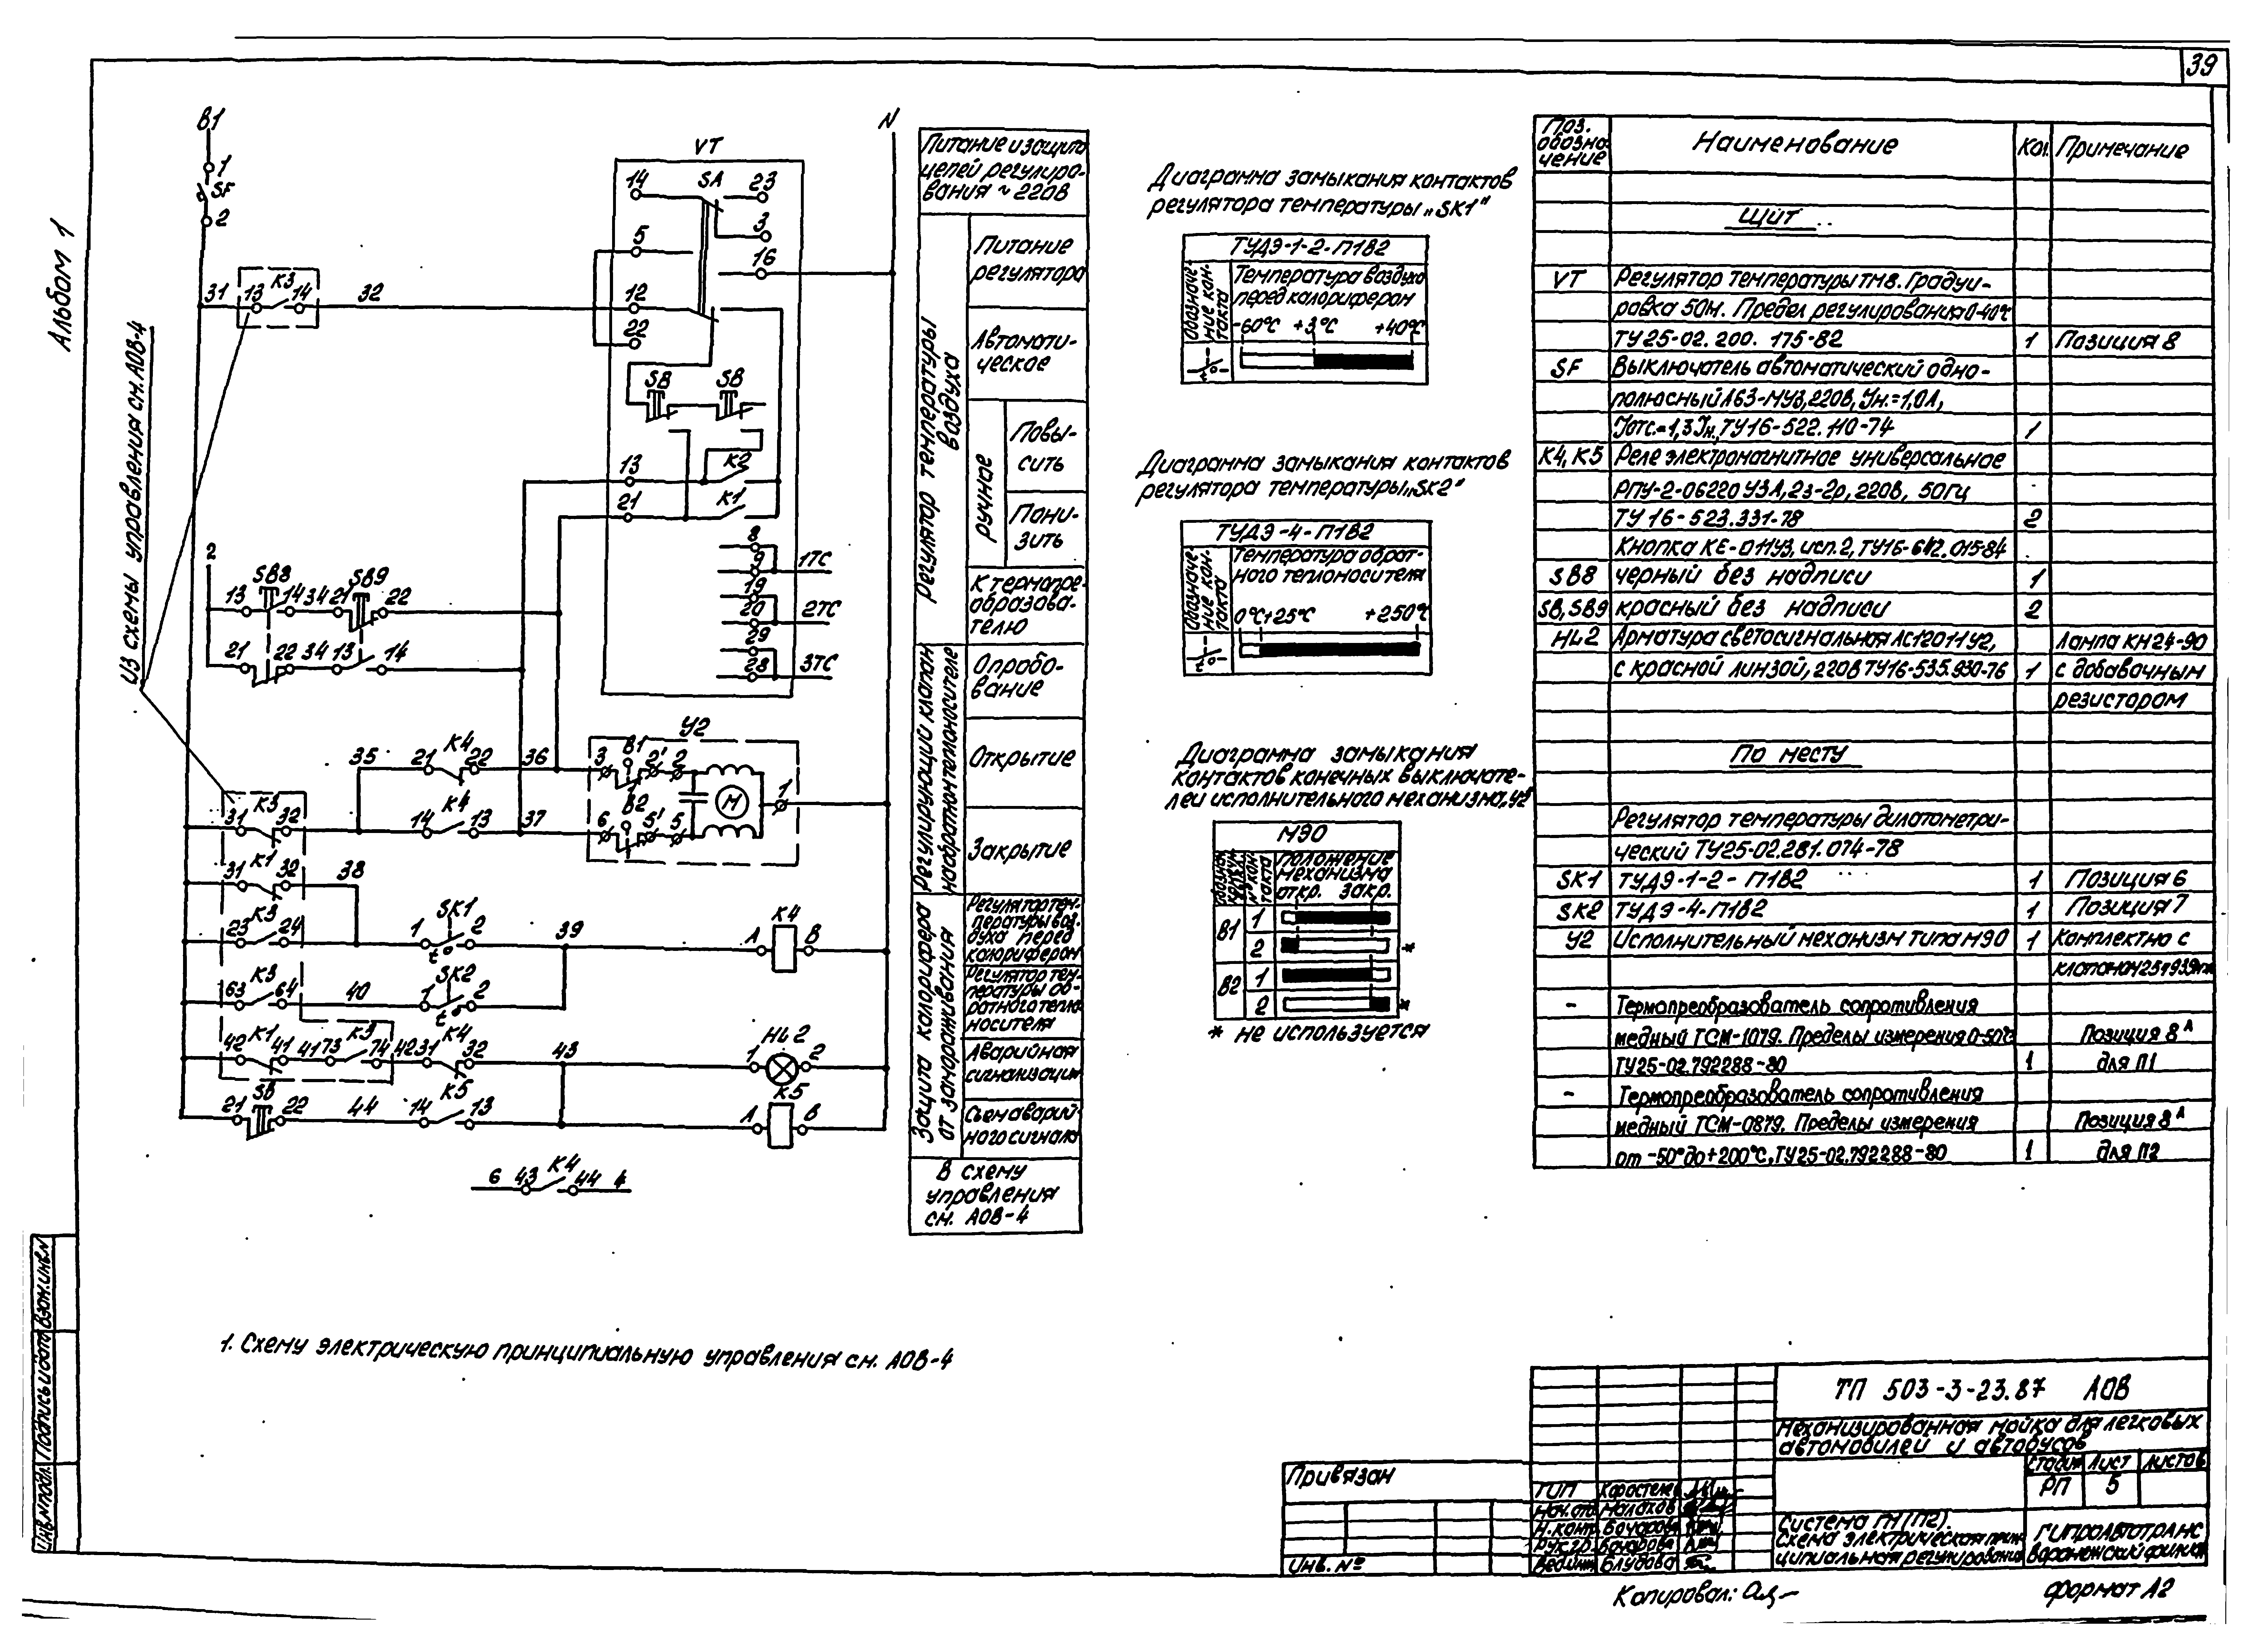 39
Альбом 1
В1
1
SF
2
31
13
К3
14
32
Из схемы управления см. АОВ-4
VT
N
14
SA
23
3
5
16
12
22
SB
SB
13
К2
21
К1
8
9
1ТС
19
20
2ТС
29
28
3ТС
2
13
SB8
14
34
21
SB9
22
21
22
34
13
14
35
21
К4
22
36
3
В1
2'
2
У2
М
1
31
К3
32
14
К4
13
37
6
В2
5'
5
31
К1
32
38
23
К3
24
1
SK1
2
t°
39
А
К4
В
63
К3
64
40
1
SK2
2
t°
42
К1
41
41
73
К3
74
42
31
К4
32
43
1
HL2
2
21
SB
22
44
14
К5
13
А
К5
В
6
43
К4
44
4
Питание и защита
цепей регулиро-
вания ~ 220В
Регулятор температуры
воздуха
Питание
регулятора
Автомати-
ческое
ручное
Повы-
сить
Пони-
зить
К термопре-
образова-
телю
Регулирующий клапан
на обратном теплоносителе
Опробо-
вание
Открытие
Закрытие
Защита калорифера
от замораживания
Регулятор тем-
пературы воз-
духа перед
калорифером
Регулятор тем-
пературы об-
ратного тепло-
носителя
Аварийная
сигнализация
Съем аварий-
ного сигнала
В схему
управления
см. АОВ-4
1. Схему электрическую принципиальную управления см. АОВ-4
Диаграмма замыкания контактов
регулятора температуры „SK1"
ТУДЭ-1-2-П1В2
Обозначе-
ние кон-
такта
Температура воздуха
перед калорифером
-60°С +3°С +40°С
Диаграмма замыкания контактов
регулятора температуры „SK2"
ТУДЭ-4-П1В2
Обозначе-
ние кон-
такта
Температура обрат-
ного теплоносителя
0°С +25°С +250°С
Диаграмма замыкания
контактов конечных выключате-
лей исполнительного механизма „У2"
МЭО
№ кон-
такта
Положение
механизма
откр. закр.
В1
1
2
*
В2
1
2
*
* не используется
Поз. обозна-чение Наименование Кол. Примечание
Щит
VT Регулятор температуры ТМ8. Градуи-
ровка 50М. Предел регулирования 0-40°С
ТУ25-02.200.175-82 1 Позиция 8
SF Выключатель автоматический одно-
полюсный А63-МУ3, 220В, Iн.=1,0А,
Iотс.=1,3Iн, ТУ16-522.110-74 1
К4, К5 Реле электромагнитное универсальное
РПУ-2-06220У3А, 2з-2р, 220В, 50Гц
ТУ 16-523.331-78 2
Кнопка КЕ-011У3, исп.2, ТУ16-642.015-84
SB8 черный без надписи 1
SB, SB9 красный без надписи 2
HL2 Арматура светосигнальная АС12011У2, Лампа КМ24-90
с красной линзой, 220В ТУ16-535.930-76 1 с добавочным
резистором
По месту
Регулятор температуры дилатометри-
ческий ТУ25-02.281.074-78
SK1 ТУДЭ-1-2-П1В2 1 Позиция 6
SK2 ТУДЭ-4-П1В2 1 Позиция 7
У2 Исполнительный механизм типа МЭО 1 Комплектно с
- Термопреобразователь сопротивления
медный ТСМ-1079. Пределы измерения 0-50°С Позиция 8А
ТУ25-02.792288-80 1 для П1
- Термопреобразователь сопротивления
медный ТСМ-0879. Пределы измерения Позиция 8А
от -50° до +200°С, ТУ25-02.792288-80 1 для П2
ТП 503-3-23.87 АОВ
Механизированная мойка для легковых
автомобилей и автобусов
Стадия Лист Листов
РП 5
Система П1 (П2).
Схема электрическая прин-
ципиальная регулирования
Гипроавтотранс
Воронежский филиал
Привязан
Инв. №
ГИП
Нач. отд. Малахов
Н. контр. Бочарова
Рук. гр. Бочарова
Вед. инж. Блудова
Копировал:
формат А2
Инв.№ подл. Подпись и дата Взам.инв.№